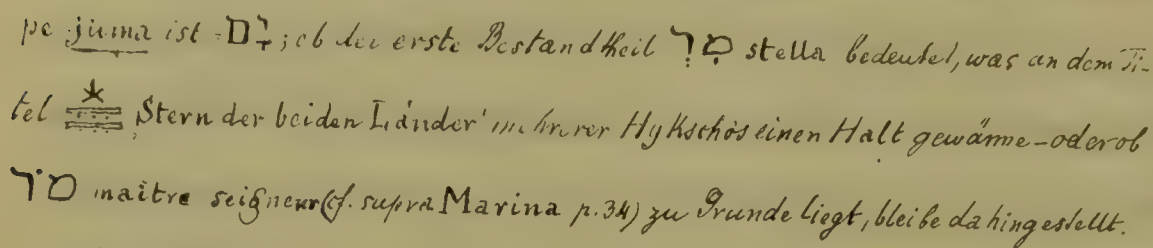 pe juma ist = יָם; ob der erste Bestandtheil מַר stella bedeutet, was an dem Ti-
tel 𓇼𓇿𓇿 „Stern der beiden Länder“ mehrerer Hykschôs einen Halt gewänne – oder ob
מר maître seigneur (cf. supra Marina p. 34) zu Grunde liegt, bleibe dahingestellt.